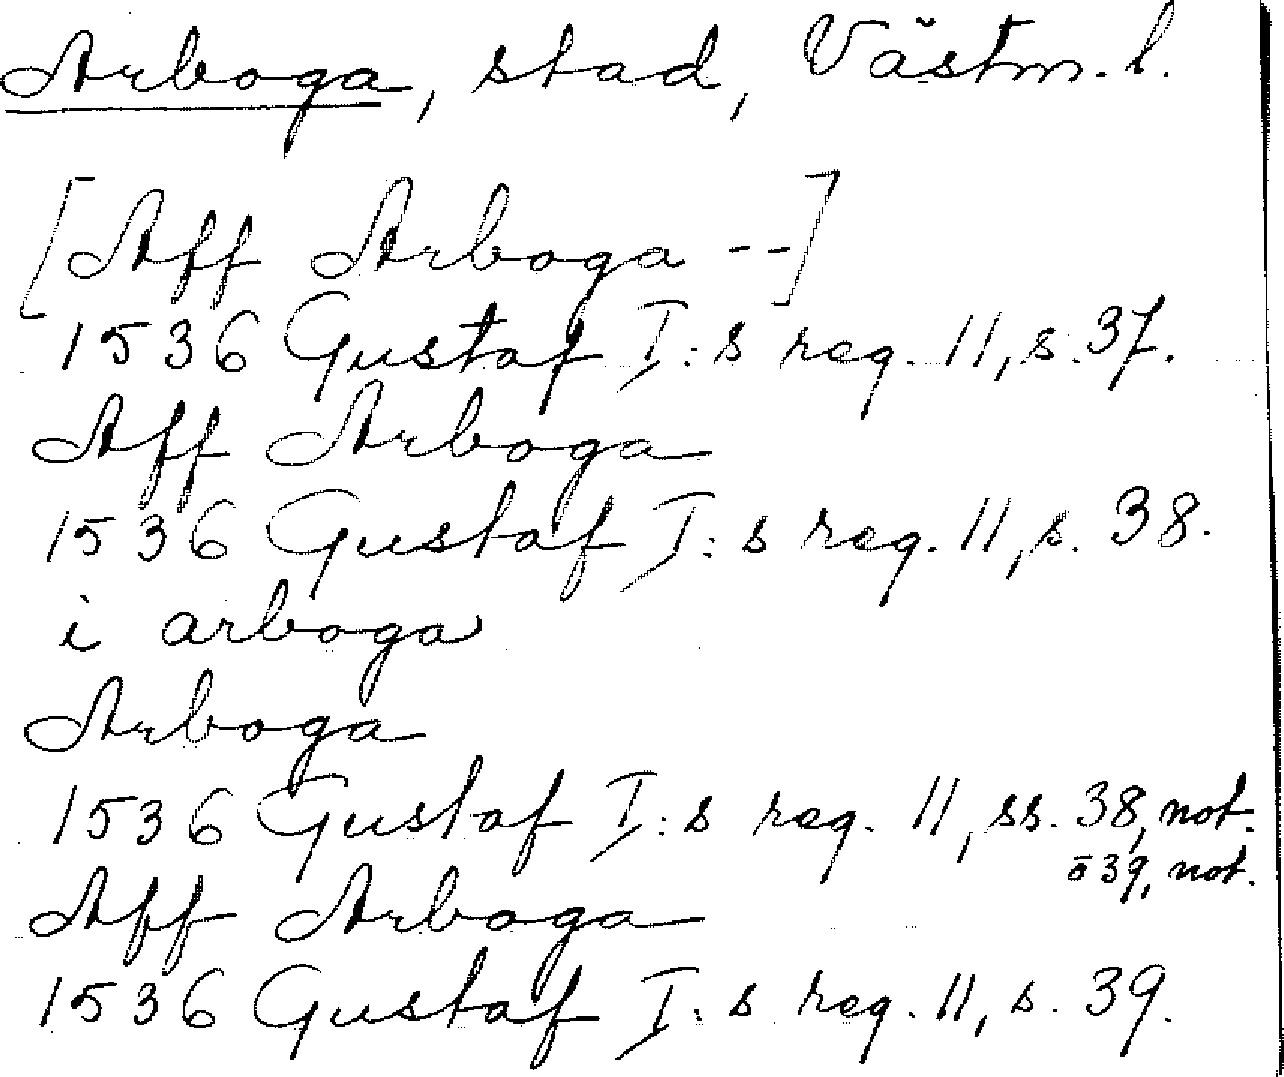 Arboga, stad, Västm. l.
[Aff Arboga --]
1536 Gustaf I:s reg. 11, s. 37.
Aff Arboga
1536 Gustaf I:s reg. 11, s. 38.
i arboga
Arboga
1536 Gustaf I:s reg. 11, ss. 38, not.
o 39, not.
Aff Arboga
1536 Gustaf I:s reg. 11, s. 39.